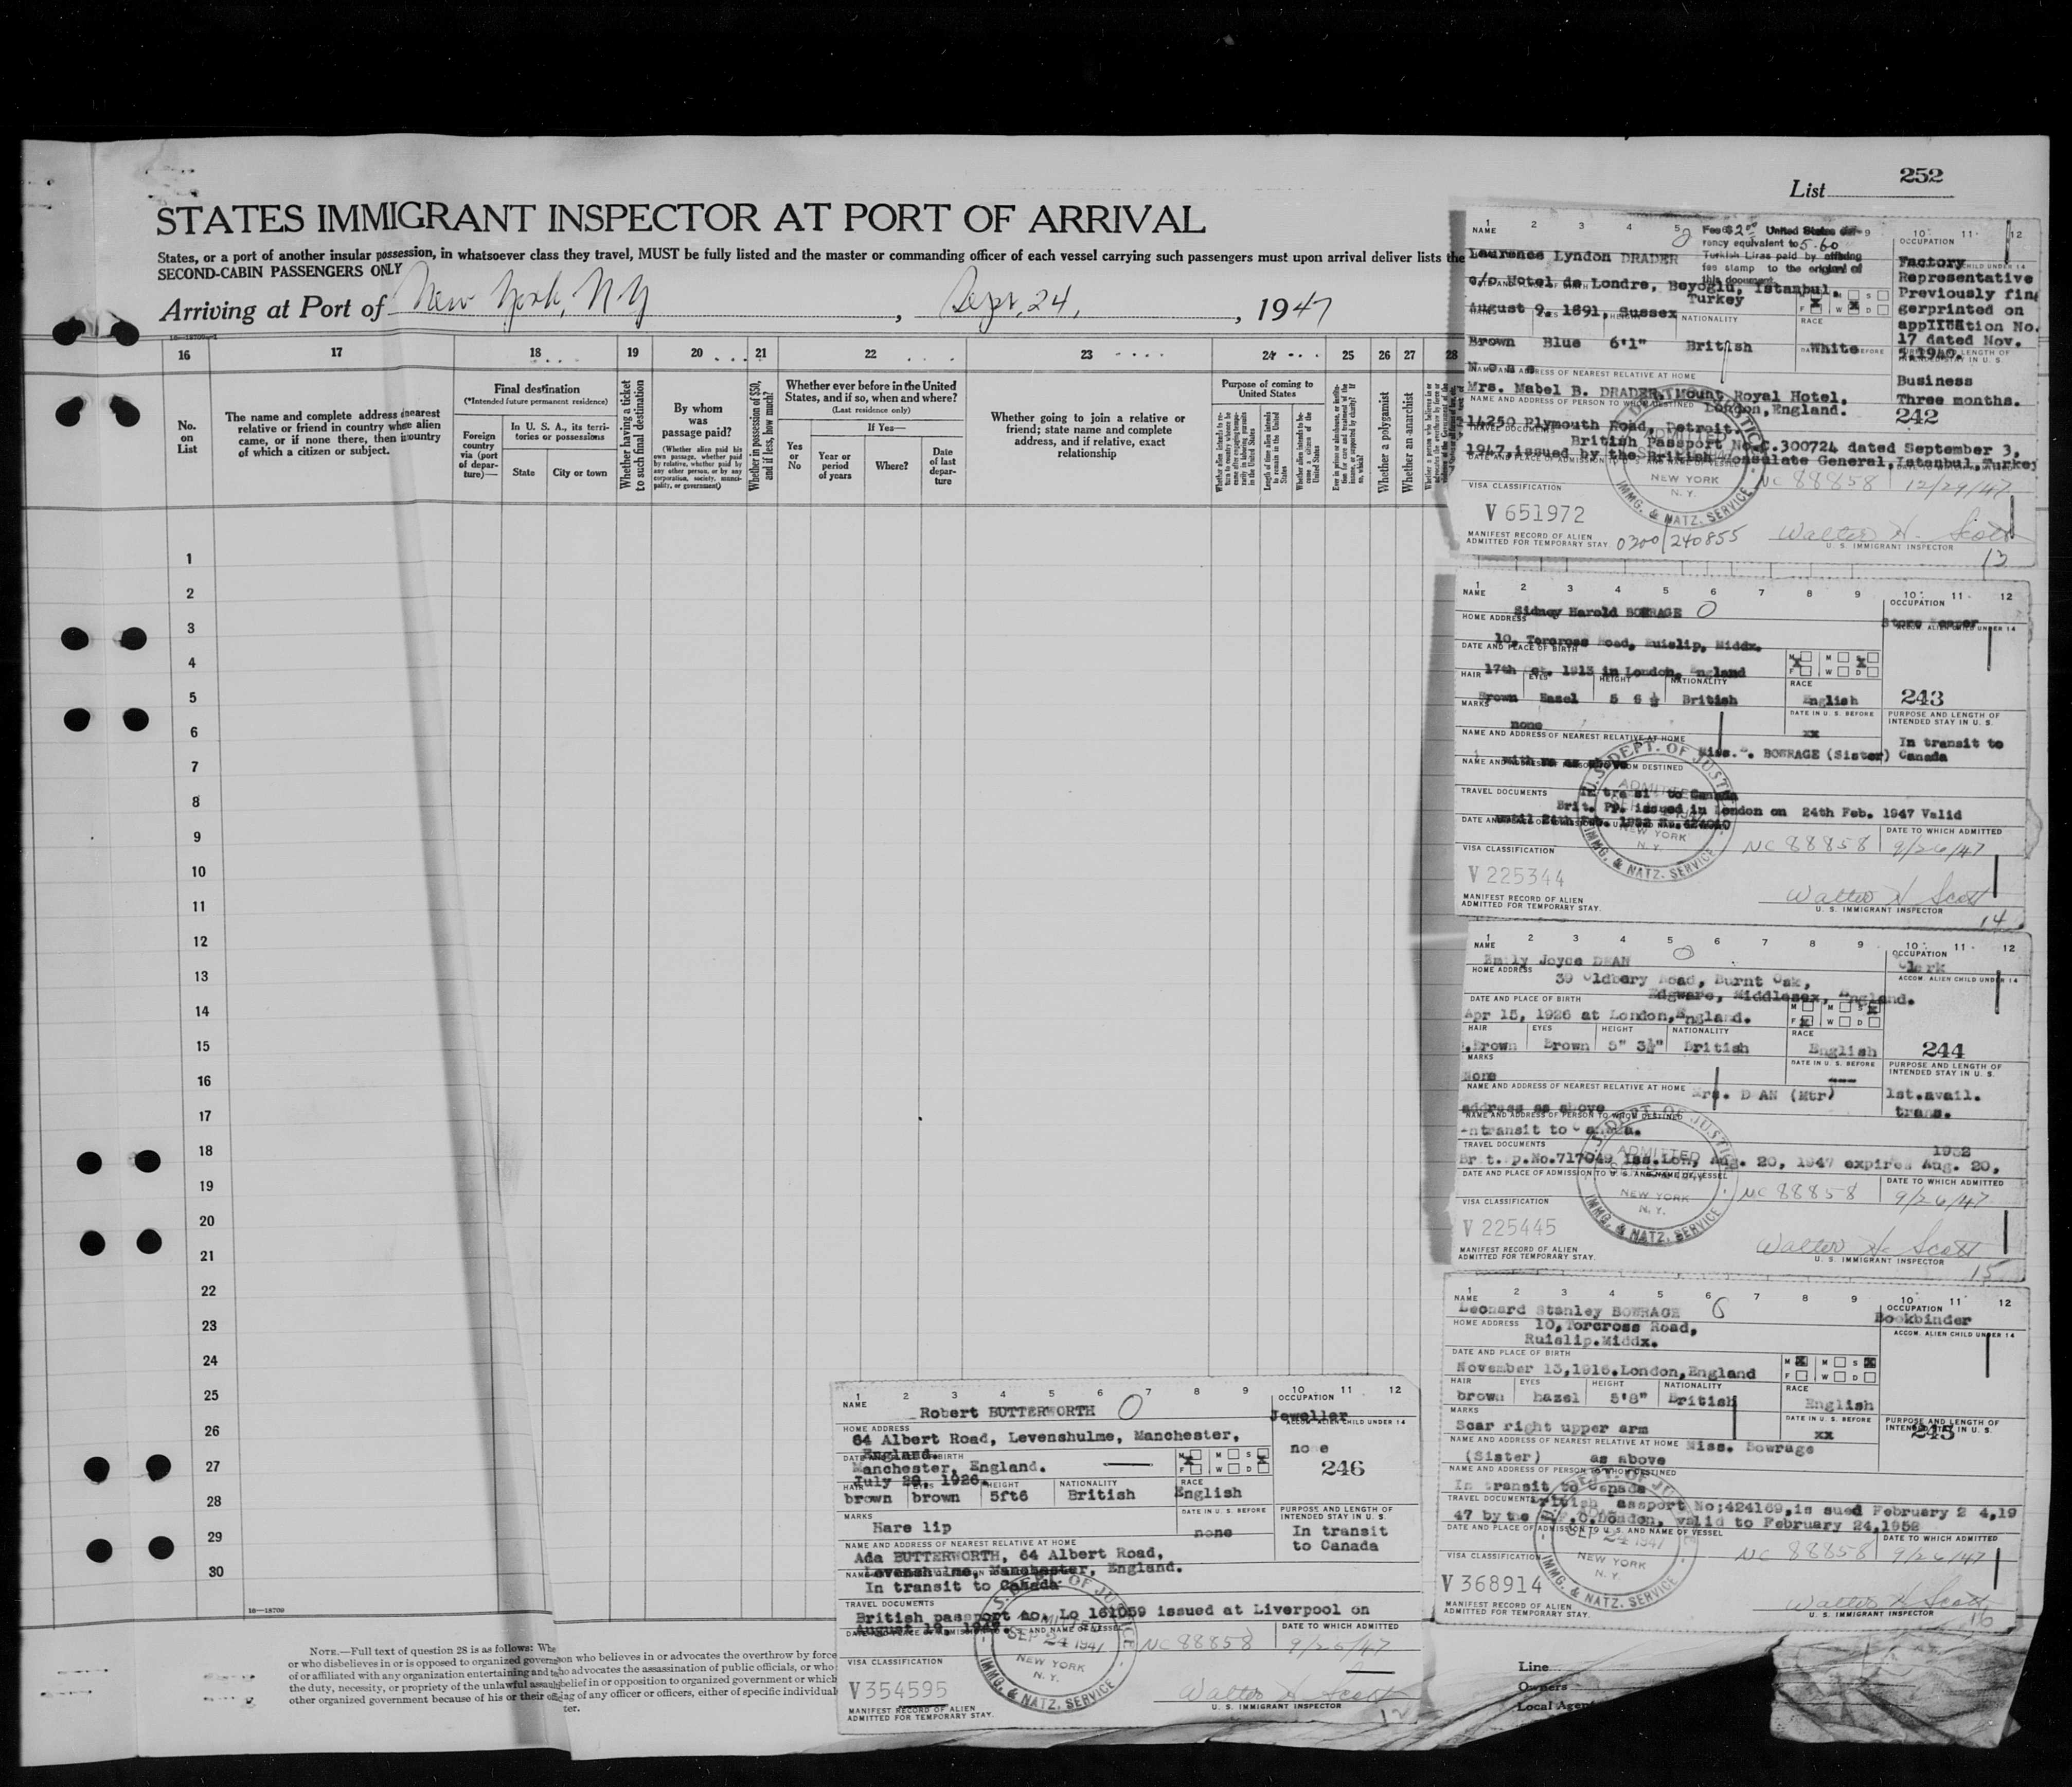 252
List
STATES IMMIGRANT INSPECTOR AT PORT OF ARRIVAL
States, or a port of another insular possession, in whatsoever class they travel, MUST be fully listed and the master or commanding officer of each vessel carrying such passengers must upon arrival deliver lists the
SECOND-CABIN PASSENGERS ONLY
Arriving at Port of New York, N Y, Sept, 24, 1947
16 17 18 19 20 21 22 23 24 25 26 27 28
No. on List
The name and complete address nearest
relative or friend in country whence alien
came, or if none there, then in country
of which a citizen or subject.
Final destination
(*Intended future permanent residence)
Foreign country via (port of departure)—
In U. S. A., its territories or possessions
State
City or town
Whether having a ticket to such final destination
By whom was passage paid?
(Whether alien paid his own passage, whether paid by relative, whether paid by any other person, or by any corporation, society, municipality, or government)
Whether in possession of $50, and if less, how much?
Whether ever before in the United States, and if so, when and where?
(Last residence only)
Yes or No
If Yes—
Year or period of years
Where?
Date of last departure
Whether going to join a relative or
friend; state name and complete
address, and if relative, exact
relationship
Purpose of coming to United States
Length of time alien intends to remain in the United States
Whether alien intends to become a citizen of the United States
Whether a polygamist
Whether an anarchist
1
2
3
4
5
6
7
8
9
10
11
12
13
14
15
16
17
18
19
20
21
22
23
24
25
26
27
28
29
30
16—18709
NOTE.—Full text of question 28 is as follows: Whe
or who disbelieves in or is opposed to organized govern
of or affiliated with any organization entertaining and te
the duty, necessity, or propriety of the unlawful assaul
other organized government because of his or their off
on who believes in or advocates the overthrow by force
ho advocates the assassination of public officials, or who
belief in or opposition to organized government or which
ing of any officer or officers, either of specific individual
ter.
NAME
Laurence Lyndon DRADER
Fee $2.00 United States cur-
rency equivalent to 5.60
Turkish Liras paid by affixing
fee stamp to the original of
this document.
OCCUPATION
Factory
Representative
c/o Hotel de Londre, Beyoglu, Istanbul.
Turkey
Previously fin
gerprinted on
application No.
17 dated Nov.
August 9, 1891, Sussex
NATIONALITY
RACE
Brown Blue 6'1" British White
None
NAME AND ADDRESS OF NEAREST RELATIVE AT HOME
Mrs. Mabel B. DRADER, Mount Royal Hotel,
London, England.
Business
Three months.
242
NAME AND ADDRESS OF PERSON TO WHOM DESTINED
14250 Plymouth Road, Detroit.
British Passport No. C.300724 dated September 3,
1947, issued by the British Consulate General, Istanbul, Turkey
NC 88858 12/24/47
VISA CLASSIFICATION
V 651972
NEW YORK
N. Y.
IMMG. & NATZ. SERVICE
MANIFEST RECORD OF ALIEN
ADMITTED FOR TEMPORARY STAY.
0300/240855
Walter H. Scott
U. S. IMMIGRANT INSPECTOR
13
NAME
Sidney Harold BOWRAGE
OCCUPATION
Store Keeper
HOME ADDRESS
10, Torcross Road, Ruislip, Middx.
DATE AND PLACE OF BIRTH
17th Oct. 1913 in London, England
HAIR EYES HEIGHT NATIONALITY RACE
Brown Hazel 5 6 ½ British English
243
MARKS
none
DATE IN U. S. BEFORE
xx
PURPOSE AND LENGTH OF
INTENDED STAY IN U. S.
In transit to
Canada
NAME AND ADDRESS OF NEAREST RELATIVE AT HOME
Miss. BOWRAGE (Sister)
with me as above
TRAVEL DOCUMENTS
In transit to Canada
Brit. Pp. issued in London on 24th Feb. 1947 Valid
until 24th Feb. 1952 No. 424040
DATE TO WHICH ADMITTED
NC 88858 9/26/47
VISA CLASSIFICATION
V 225344
U.S. DEPT. OF JUSTICE
ADMITTED
NEW YORK
N. Y.
IMMG. & NATZ. SERVICE
MANIFEST RECORD OF ALIEN
ADMITTED FOR TEMPORARY STAY.
Walter H Scott
U. S. IMMIGRANT INSPECTOR
14
NAME
Emily Joyce DEAN
OCCUPATION
Clerk
HOME ADDRESS
39 Oldbery Road, Burnt Oak,
Edgware, Middlesex, England.
ACCOM. ALIEN CHILD UNDER 14
DATE AND PLACE OF BIRTH
Apr 15, 1926 at London, England.
HAIR EYES HEIGHT NATIONALITY RACE
Brown Brown 5" 3½" British English
244
MARKS
None
DATE IN U. S. BEFORE
PURPOSE AND LENGTH OF
INTENDED STAY IN U. S.
1st.avail.
trans.
NAME AND ADDRESS OF NEAREST RELATIVE AT HOME
Mrs. D AN (Mtr)
address as above
NAME AND ADDRESS OF PERSON TO WHOM DESTINED
Intransit to Canada.
TRAVEL DOCUMENTS
1952
Br t. p.No.717049 Iss.Lon, Aug. 20, 1947 expires Aug. 20,
DATE AND PLACE OF ADMISSION TO U. S. AND NAME OF VESSEL
DATE TO WHICH ADMITTED
NC 88858 9/26/47
VISA CLASSIFICATION
V 225445
ADMITTED
NEW YORK
N. Y.
IMMG. & NATZ. SERVICE
MANIFEST RECORD OF ALIEN
ADMITTED FOR TEMPORARY STAY.
Walter H. Scott
U. S. IMMIGRANT INSPECTOR
15
NAME
Leonard Stanley BOWRAGE
OCCUPATION
Bookbinder
HOME ADDRESS
10,Torcross Road,
Ruislip.Middx.
ACCOM. ALIEN CHILD UNDER 14
DATE AND PLACE OF BIRTH
November 13,1916.London,England
HAIR EYES HEIGHT NATIONALITY RACE
brown hazel 5'8" British English
MARKS
Scar right upper arm
DATE IN U. S. BEFORE
xx
PURPOSE AND LENGTH OF
INTENDED STAY IN U. S.
245
NAME AND ADDRESS OF NEAREST RELATIVE AT HOME
Miss. Bowrage
(Sister) as above
NAME AND ADDRESS OF PERSON TO WHOM DESTINED
In transit to Canada
TRAVEL DOCUMENTS
British assport No:424169,is sued February 2 4,19
47 by the F.O.London, valid to February 24,1952
DATE AND PLACE OF ADMISSION TO U. S. AND NAME OF VESSEL
DATE TO WHICH ADMITTED
SEP 24 1947
NC 88858 9/26/47
VISA CLASSIFICATION
V 368914
NEW YORK
N. Y.
IMMG. & NATZ. SERVICE
MANIFEST RECORD OF ALIEN
ADMITTED FOR TEMPORARY STAY.
Walter H Scott
U. S. IMMIGRANT INSPECTOR
16
NAME
Robert BUTTERWORTH
OCCUPATION
Jeweller
ACCOM. ALIEN CHILD UNDER 14
HOME ADDRESS
64 Albert Road, Levenshulme, Manchester,
England.
no e
DATE AND PLACE OF BIRTH
Manchester, England.
July 29, 1926.
246
HAIR EYES HEIGHT NATIONALITY RACE
brown brown 5ft6 British English
MARKS
Hare lip
DATE IN U. S. BEFORE
none
PURPOSE AND LENGTH OF
INTENDED STAY IN U. S.
In transit
to Canada
NAME AND ADDRESS OF NEAREST RELATIVE AT HOME
Ada BUTTERWORTH, 64 Albert Road,
Levenshulme, Manchester, England.
In transit to Canada
TRAVEL DOCUMENTS
British passport no. Lo 161059 issued at Liverpool on
August 19, 1947
DATE TO WHICH ADMITTED
SEP 24 1947
NC 88858 9/26/47
VISA CLASSIFICATION
V354595
NEW YORK
N. Y.
IMMG. & NATZ. SERVICE
MANIFEST RECORD OF ALIEN
ADMITTED FOR TEMPORARY STAY.
Walter H Scott
U. S. IMMIGRANT INSPECTOR
Line
Owners
Local Agen